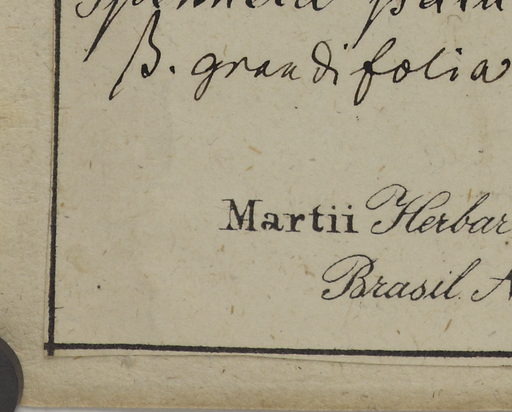 β. grandifolia
Martii Herbar
Brasil. A